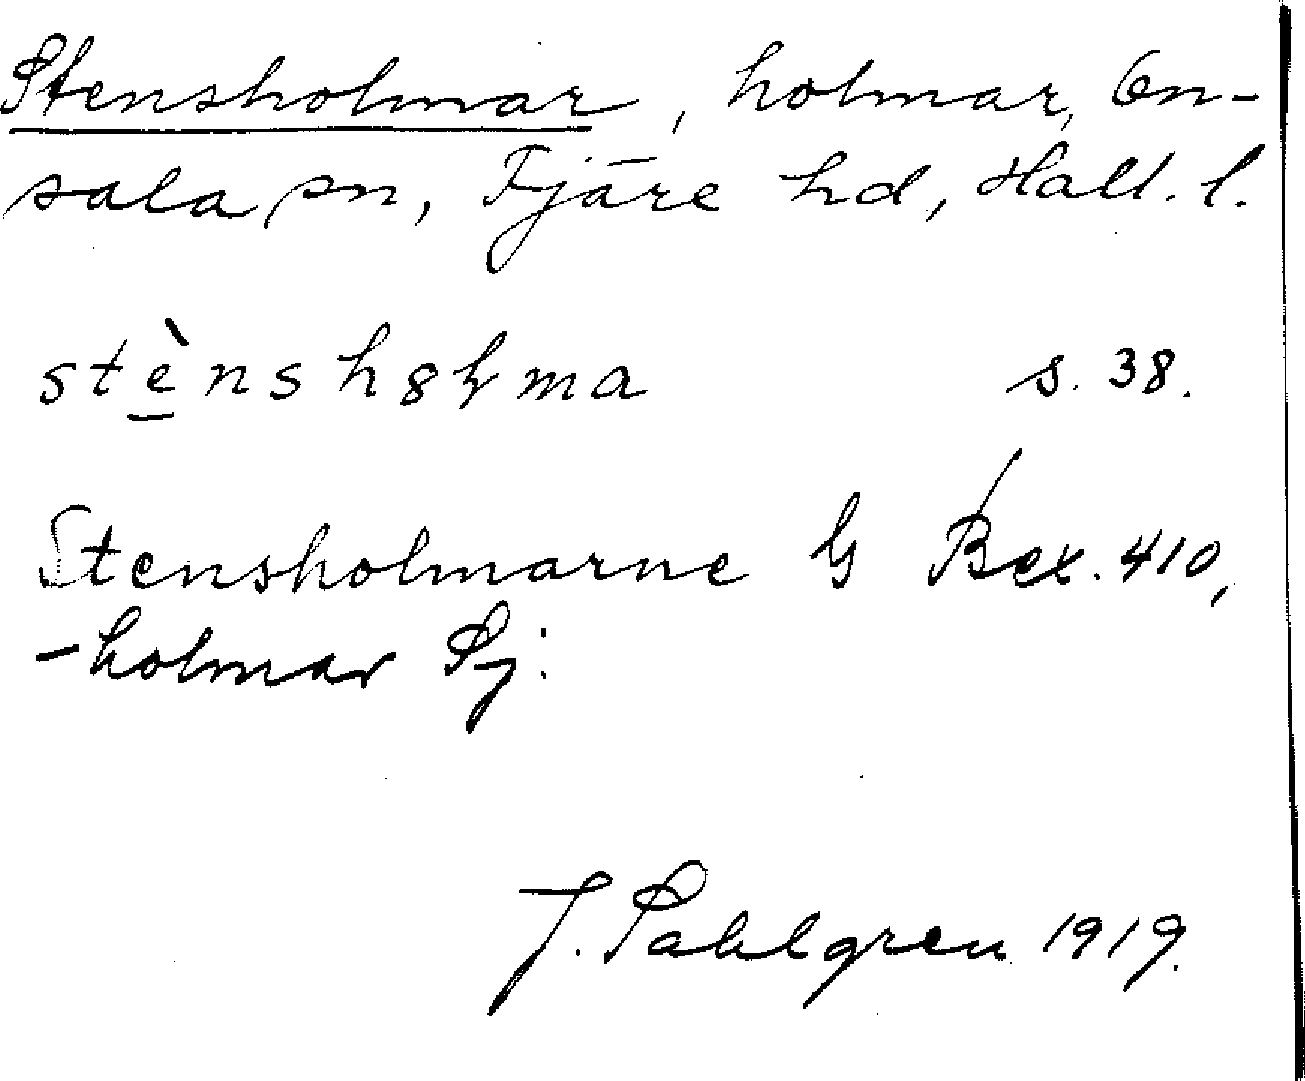 Stensholmar, holmar, On-
sala sn, Fjäre hd, Hall. l.
stènshȣɫma s. 38.
Stensholmarne G Bex. 410,
-holmar Sj.
J. Sahlgren 1919.